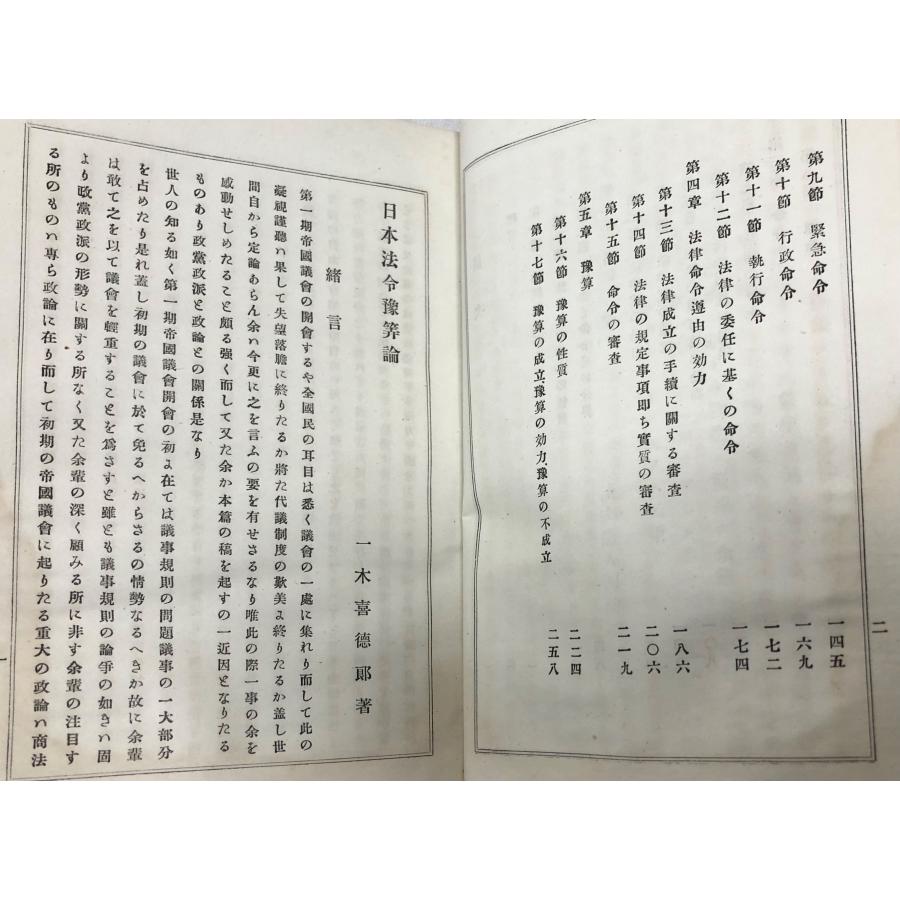 二
第九節　緊急命令　一四五
第十節　行政命令　一六九
第十一節　執行命令　一七二
第十二節　法律の委任に基くの命令　一七四
第四章　法律命令遵由の効力
第十三節　法律成立の手續に關する審査　一八六
第十四節　法律の規定事項即ち實質の審査　二〇六
第十五節　命令の審査　二一九
第五章　豫算
第十六節　豫算の性質　二二四
第十七節　豫算の成立、豫算の効力、豫算の不成立　二五八
日本法令豫筭論
一木喜德郞著
緒言
第一期帝國議會の開會するや全國民の耳目は悉く議會の一處に集れり而して此の
凝視謹聽ハ果して失望落膽に終りたるか將た代議制度の歎美ょ終りたるか盖し世
間自から定論あらん余ハ今更に之を言ふの要を有せさるなり唯此の際一事の余を
感動せしめたること頗る强く而して又た余か本篇の稿を起すの一近因となりたる
ものあり政黨政派と政論との關係是なり
世人の知る如く第一期帝國議會開會の初ょ在ては議事規則の問題議事の一大部分
を占めたり是れ蓋し初期の議會に於て免るへからさるの情勢なるへきか故に余輩
は敢て之を以て議會を輕重することを爲さすと雖とも議事規則の論爭の如きハ固
より政黨政派の形勢に關する所なく又た余輩の深く顧みる所に非す余輩の注目す
る所のものハ専ら政論に在り而して初期の帝國議會に起りたる重大の政論ハ商法
一